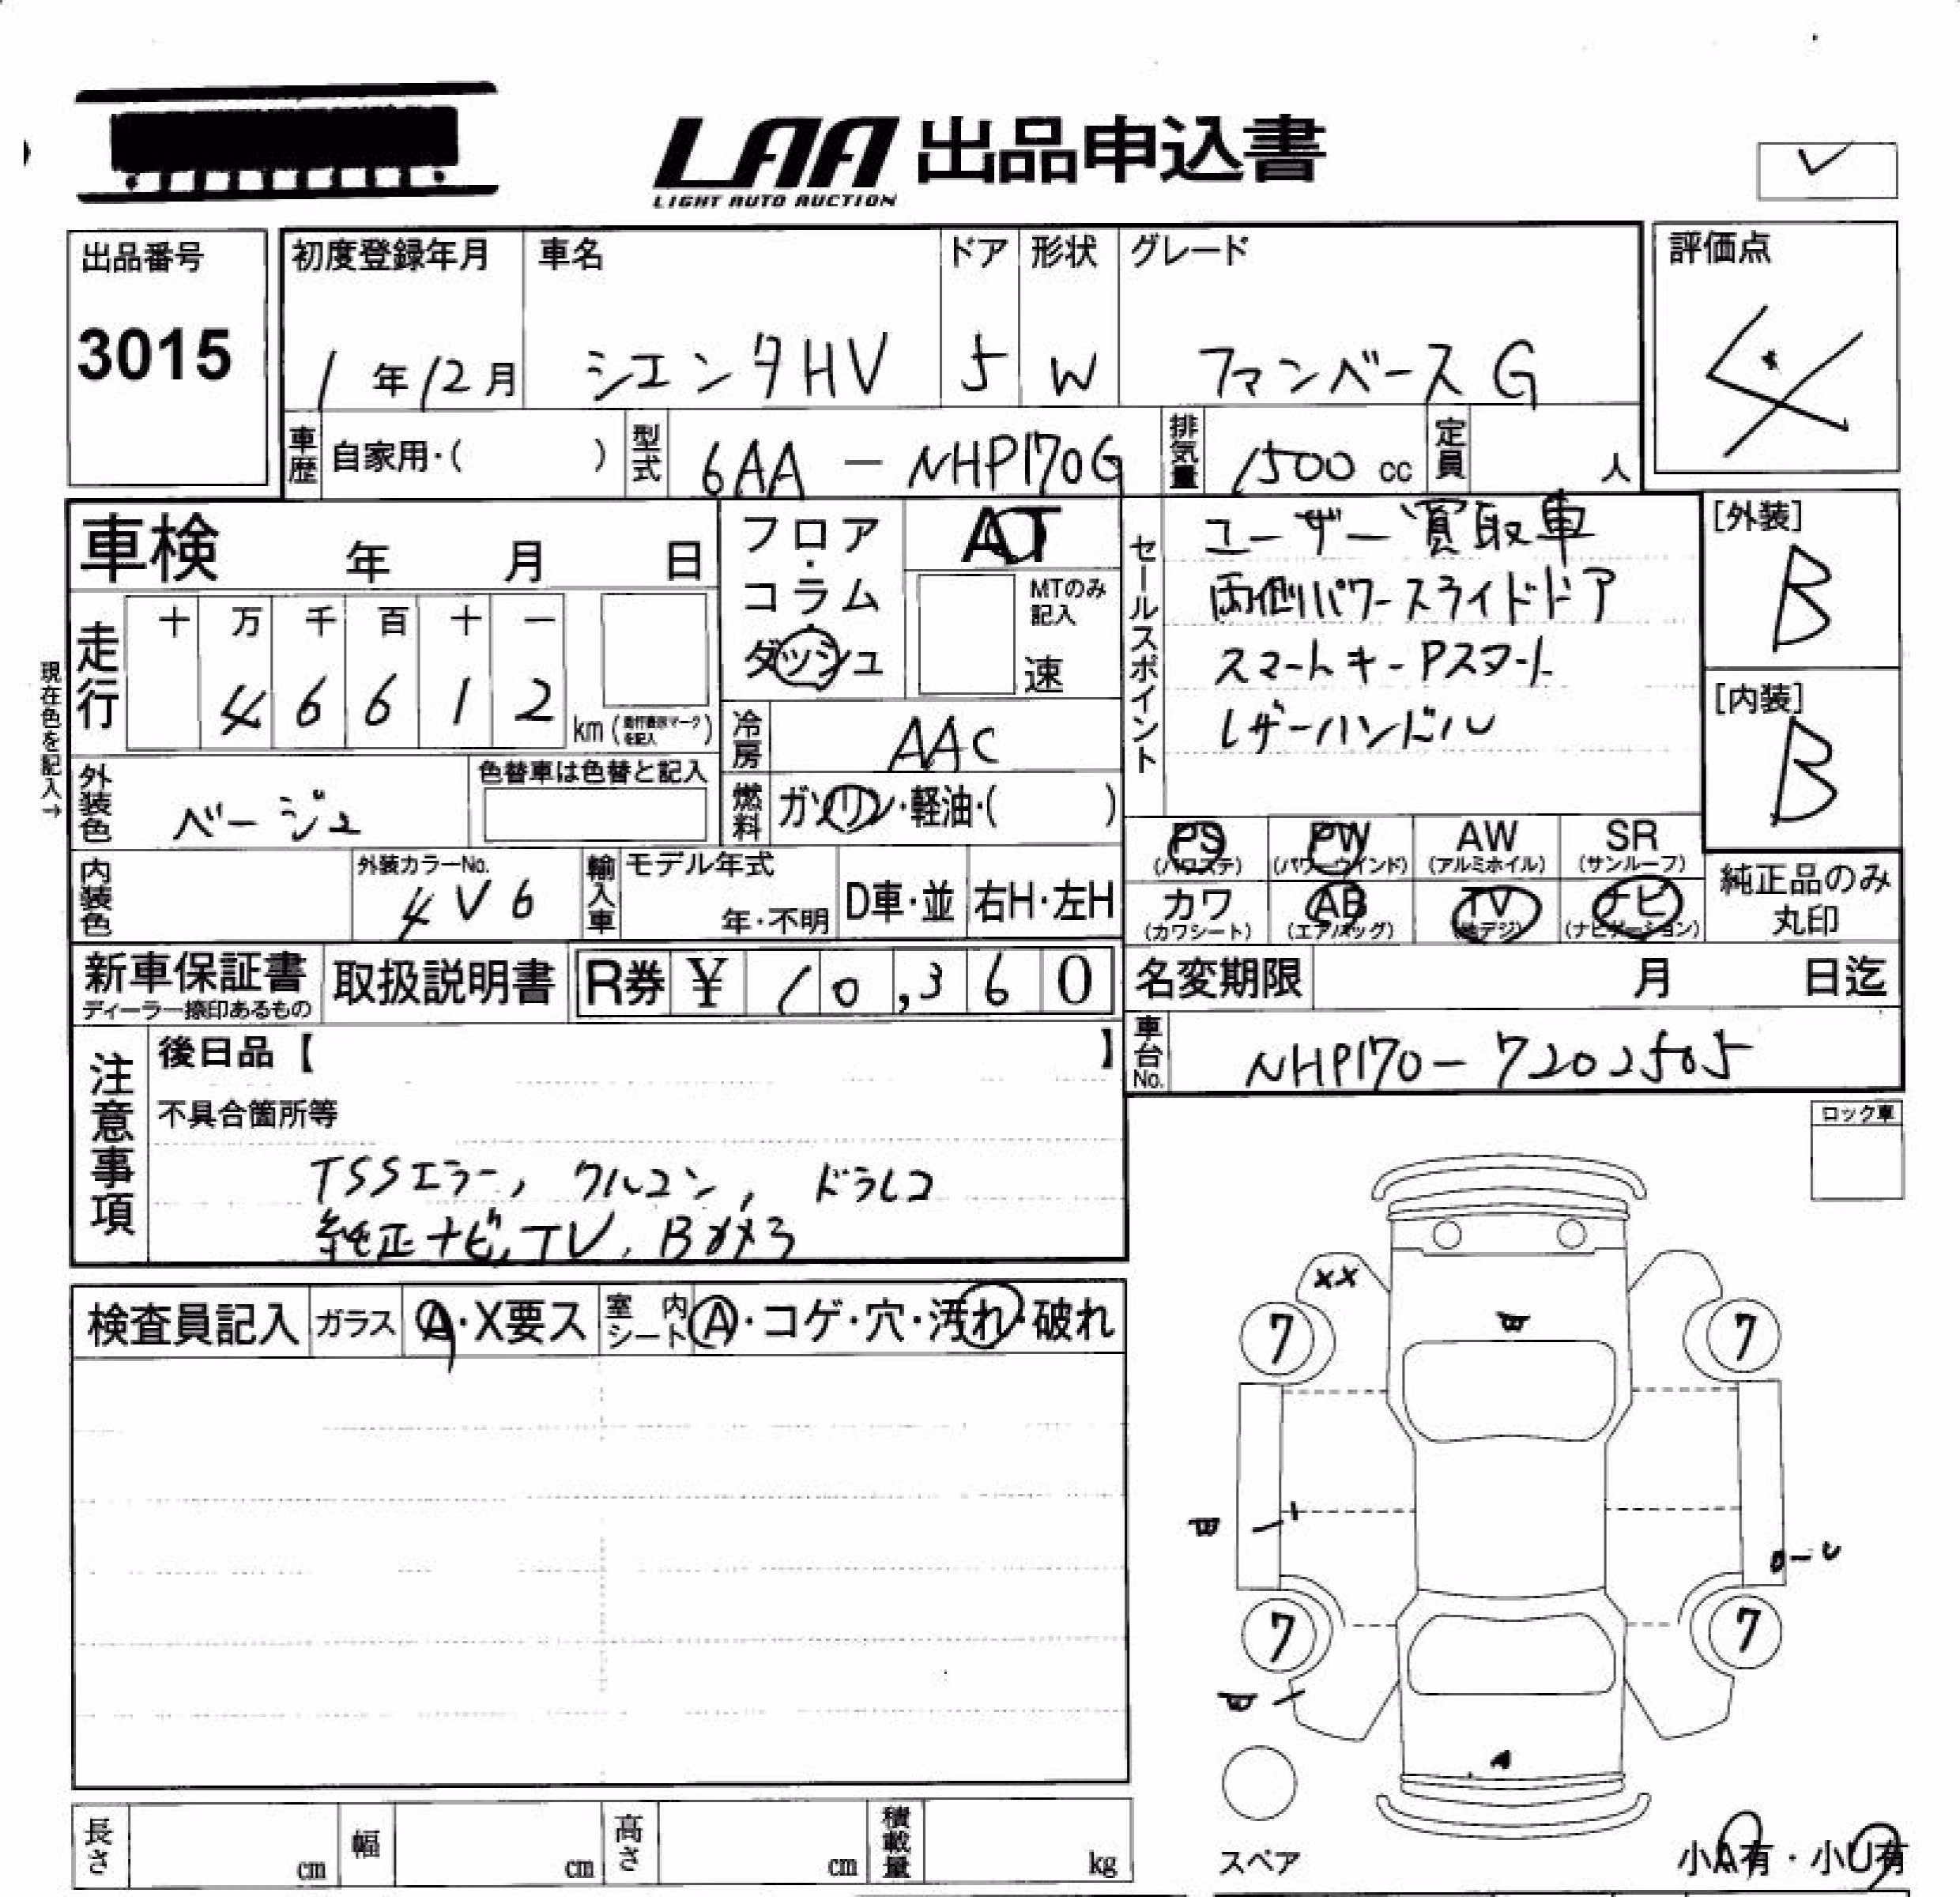 LAA 出品申込書
LIGHT AUTO AUCTION
✓
出品番号
3015
初度登録年月
1 年 12 月
車名
シエンタHV
ドア
5
形状
W
グレード
ファンベースG
評価点
4
車歴
自家用・( )
型式
6AA - NHP170G
排気量
1500 cc
定員
人
車検 年 月 日
フロア・コラム・ダッシュ
AT
MTのみ記入
速
現在色を記入→
走行
十 万 千 百 十 一
4 6 6 1 2
km (走行表示マークを記入)
冷房
AAC
外装色
ベージュ
色替車は色替と記入
燃料
ガソリン・軽油・( )
内装色
外装カラーNo.
4V6
輸入車
モデル年式
年・不明
D車・並
右H・左H
新車保証書
ディーラー捺印あるもの
取扱説明書
R券 ¥ 10,360
セールスポイント
ユーザー買取車
両側パワースライドドア
スマートキーPスタート
レザーハンドル
[外装]
B
[内装]
B
PS (パワステ)
PW (パワーウインド)
AW (アルミホイル)
SR (サンルーフ)
カワ (カワシート)
AB (エアバッグ)
TV (地デジ)
ナビ (ナビゲーション)
純正品のみ
丸印
名変期限 月 日迄
車台No.
NHP170-7202505
注意事項
後日品【 】
不具合箇所等
TSSエラー, クルコン, ドラレコ
純正ナビ, TV, Bカメラ
ロック車
検査員記入
ガラス
A・X要ス
室内シート
A・コゲ・穴・汚れ・破れ
XX
7
7
7
7
A
スペア
小A有・小U有
長さ cm
幅 cm
高さ cm
積載量 kg